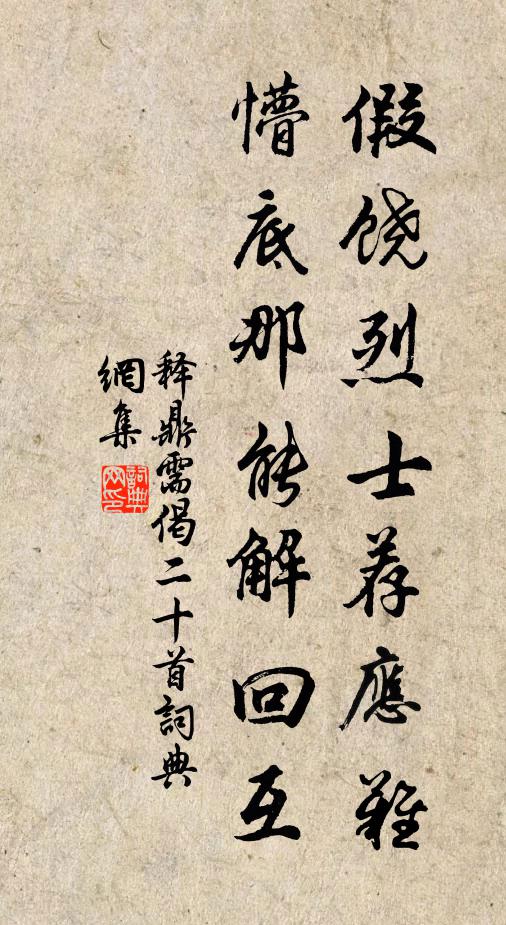 假饶烈士荐應難
懵底那能解回互
释鼎需偈二十首詞典
網集
詞典網印